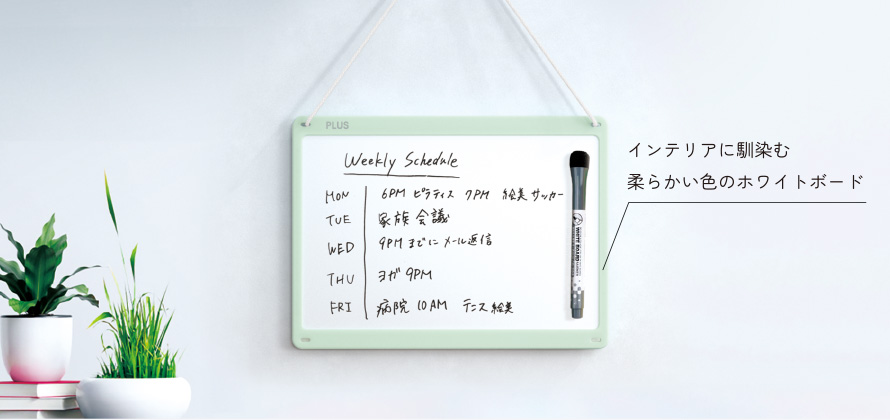 PLUS
Weekly Schedule
MON 6PM ピラティス 7PM 絵美 サッカー
TUE 家族会議
WED 9PMまでにメール返信
THU ヨガ 9PM
FRI 病院 10AM テニス 絵美
WHITE BOARD
インテリアに馴染む
柔らかい色のホワイトボード